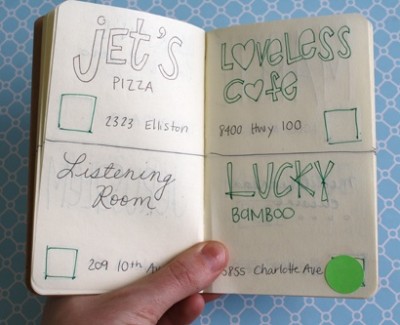 JET'S
PIZZA
2323 Elliston
LOVELESS
Cafe
8400 Hwy 100
Listening
Room
209 10th
LUCKY
BAMBOO
5855 Charlotte Ave